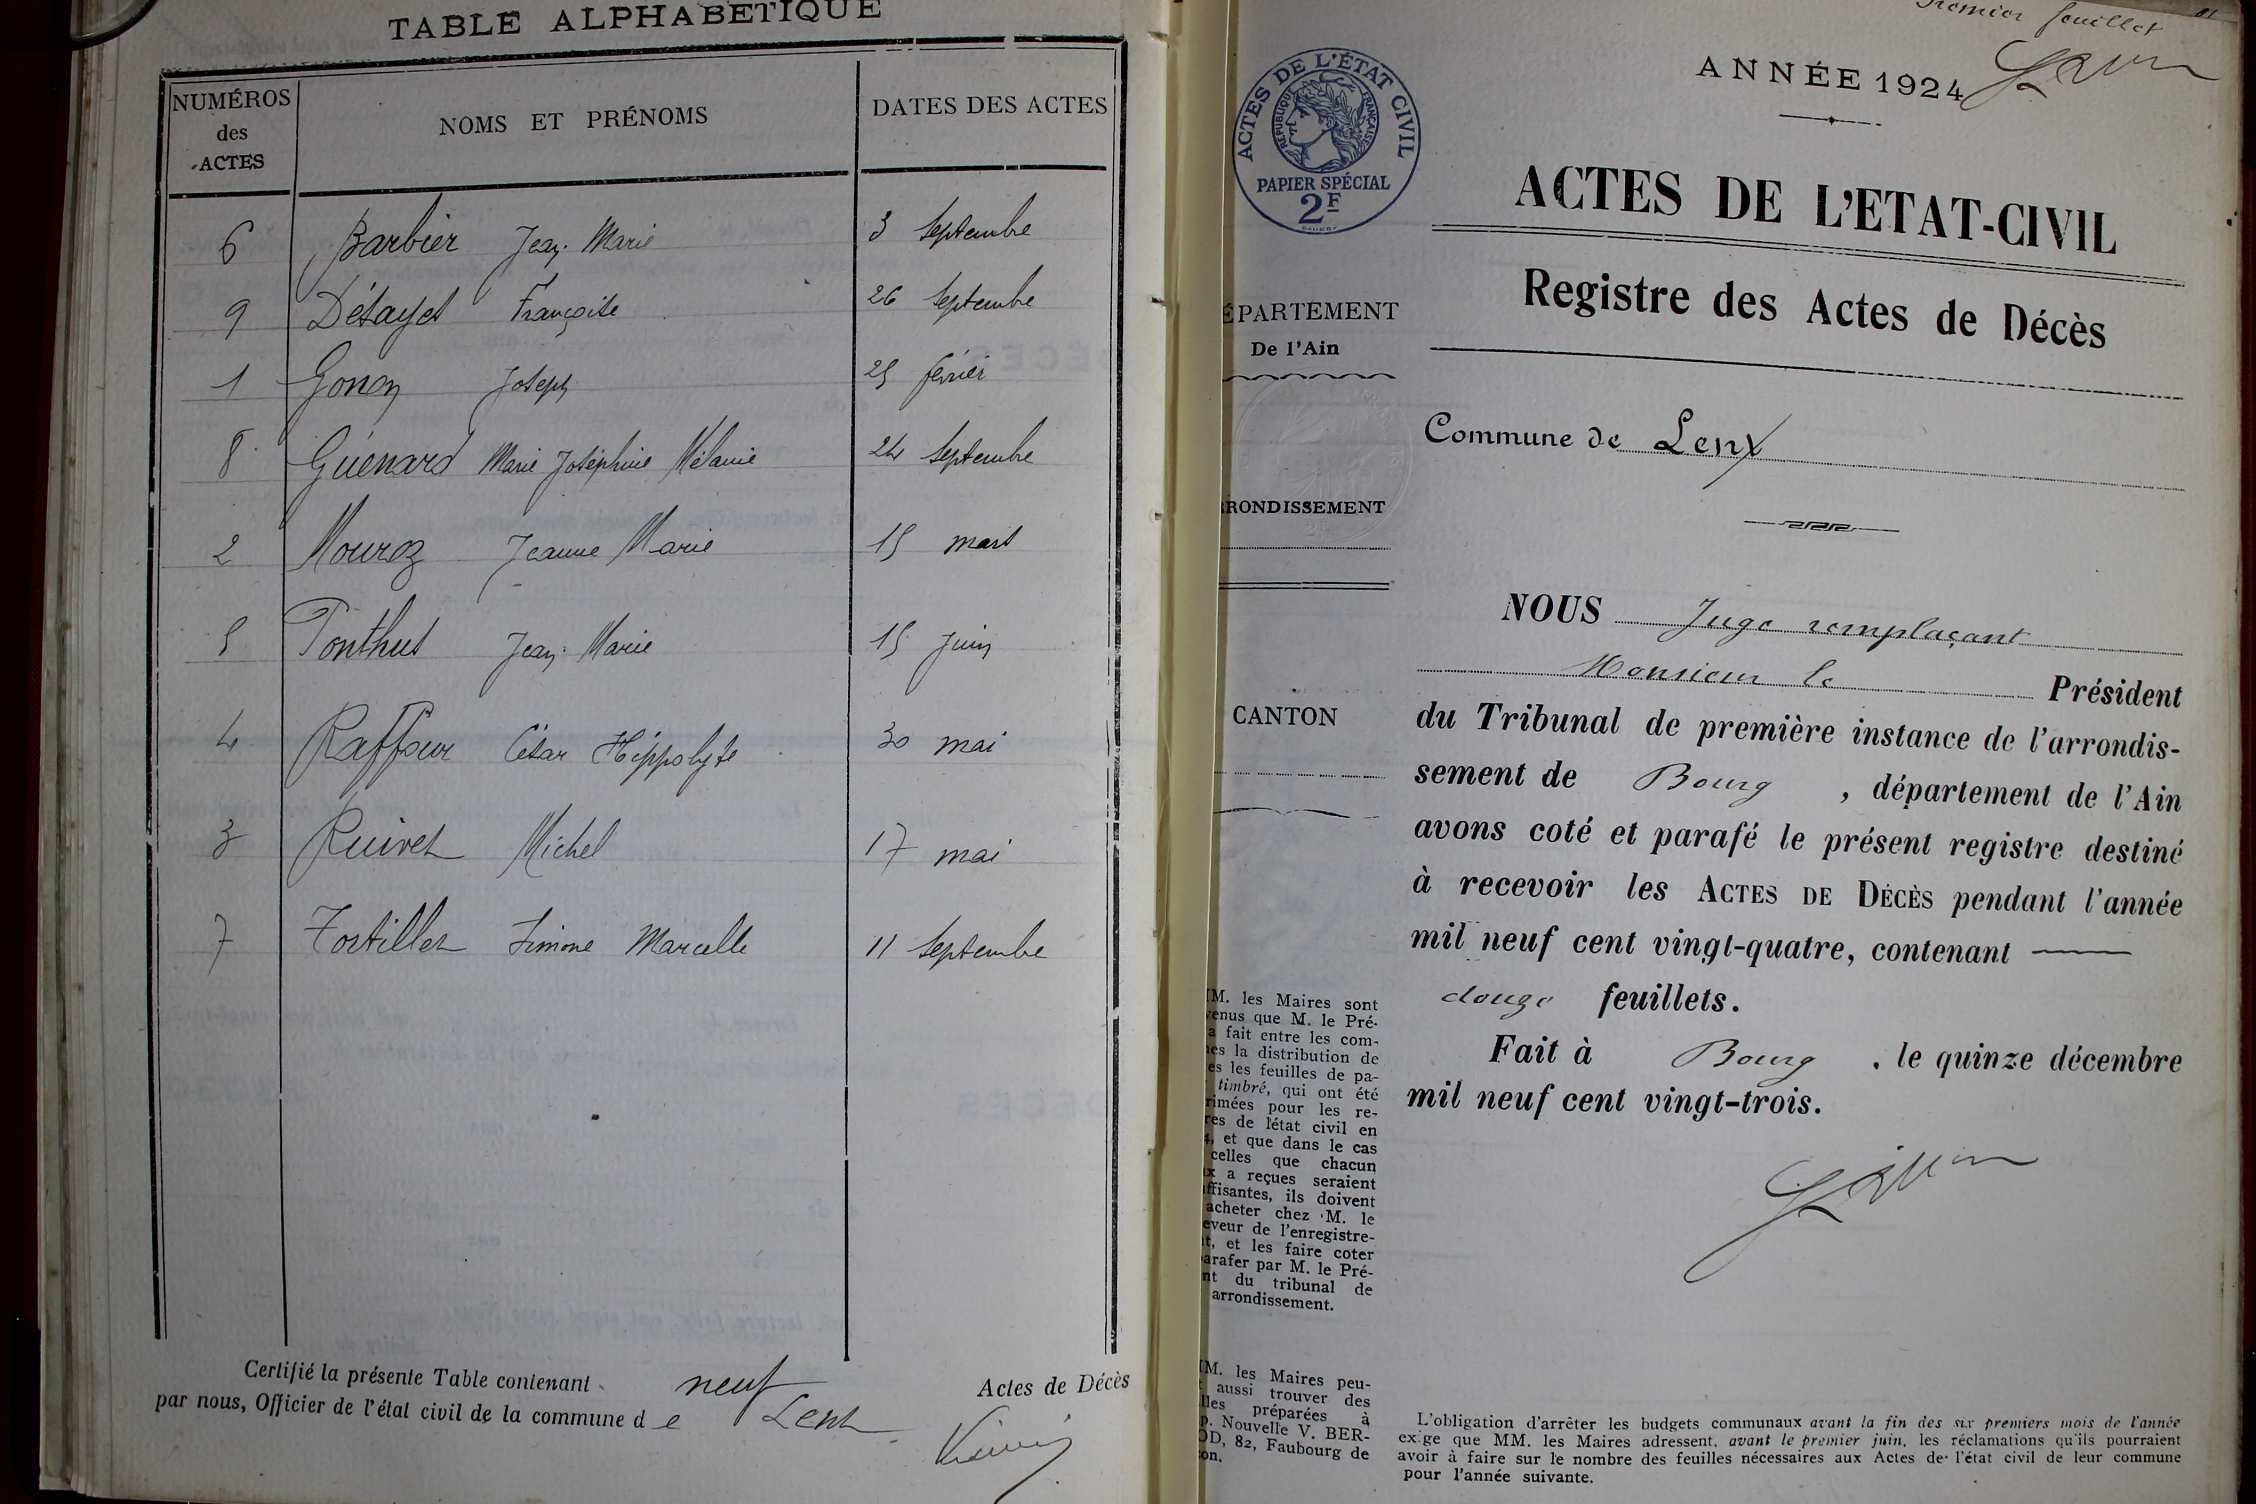 TABLE ALPHABETIQUE
NUMÉROS des ACTES
NOMS ET PRÉNOMS
DATES DES ACTES
6 Barbier Jean Marie 3 Septembre
9 Détayet Françoise 26 Septembre
1 Gonon Joseph 25 février
8 Guénard Marie Joséphine Mélanie 24 Septembre
2 Mouroz Jeanne Marie 15 mars
5 Ponthus Jean Marie 15 Juin
4 Raffour César Hippolyte 30 mai
3 Ruivet Michel 17 mai
7 Tortillet Simone Marcelle 11 Septembre
Certifié la présente Table contenant neuf Actes de Décès
par nous, Officier de l'état civil de la commune de Lent
Premier feuillet
ANNÉE 1924
ACTES DE L'ÉTAT CIVIL
RÉPUBLIQUE FRANÇAISE
PAPIER SPÉCIAL
2F
ACTES DE L'ETAT-CIVIL
Registre des Actes de Décès
ÉPARTEMENT
De l'Ain
Commune de Lent
RRONDISSEMENT
CANTON
NOUS Juge remplaçant
Monsieur le Président
du Tribunal de première instance de l'arrondis-
sement de Bourg, département de l'Ain
avons coté et parafé le présent registre destiné
à recevoir les ACTES DE DÉCÈS pendant l'année
mil neuf cent vingt-quatre, contenant
douze feuillets.
Fait à Bourg, le quinze décembre
mil neuf cent vingt-trois.
M. les Maires sont
venus que M. le Pré-
a fait entre les com-
nes la distribution de
es les feuilles de pa-
timbré, qui ont été
rimées pour les re-
res de l'état civil en
4, et que dans le cas
celles que chacun
x a reçues seraient
ffisantes, ils doivent
acheter chez M. le
eveur de l'enregistre-
t, et les faire coter
arafer par M. le Pré-
nt du tribunal de
arrondissement.
M. les Maires peu-
t aussi trouver des
lles préparées à
p. Nouvelle V. BER-
OD, 82, Faubourg de
on.
L'obligation d'arrêter les budgets communaux avant la fin des six premiers mois de l'année
exige que MM. les Maires adressent, avant le premier juin, les réclamations qu'ils pourraient
avoir à faire sur le nombre des feuilles nécessaires aux Actes de l'état civil de leur commune
pour l'année suivante.